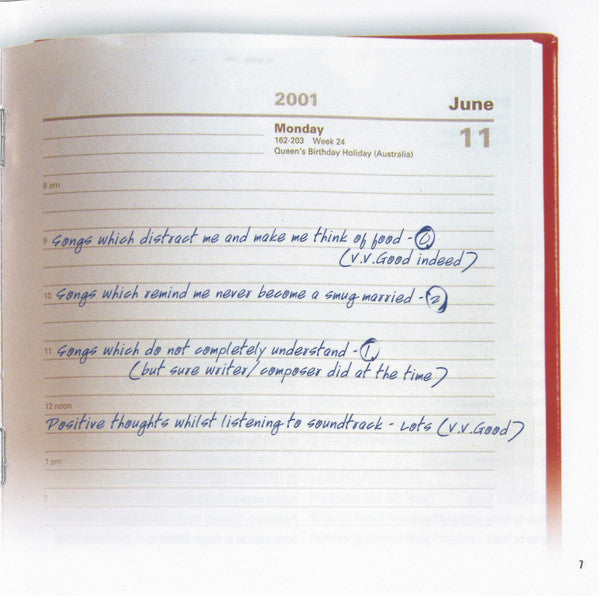 2001
June
Monday
11
162-203 Week 24
Queen's Birthday Holiday (Australia)
8 am
9 Songs which distract me and make me think of food - 0
(V.V.Good indeed)
10 Songs which remind me never become a smug married - 2
11 Songs which do not completely understand - 1
(but sure writer/composer did at the time)
12 noon
Positive thoughts whilst listening to soundtrack - Lots (V.V.Good)
1 pm
2
7